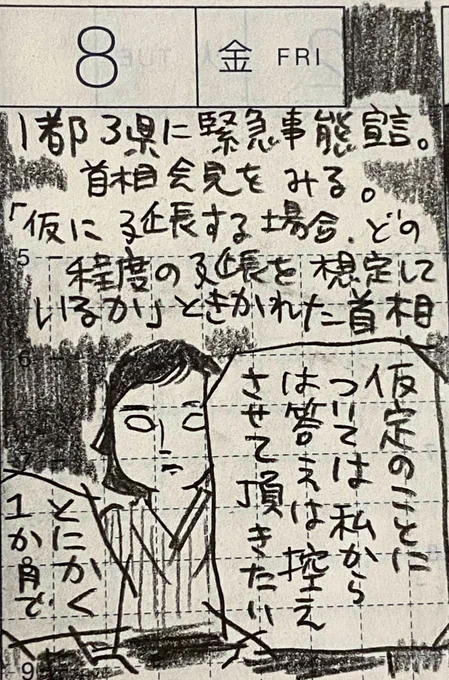 8
金 FRI
1都3県に緊急事態宣言。
首相会見をみる。
「仮に延長する場合、どの
程度の延長を想定して
いるか」ときかれた首相
仮定のことに
ついては私から
は答えは控え
させて頂きたい
とにかく
1か月で
5
6
7
9